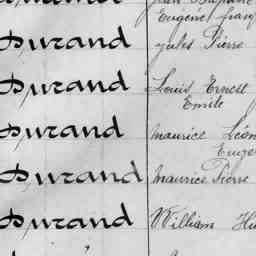 Eugene
Durand Jules Pierre
Durand Louis Ernest
Emile
Durand Maurice Léon
Durand Maurice Pierre
Durand William